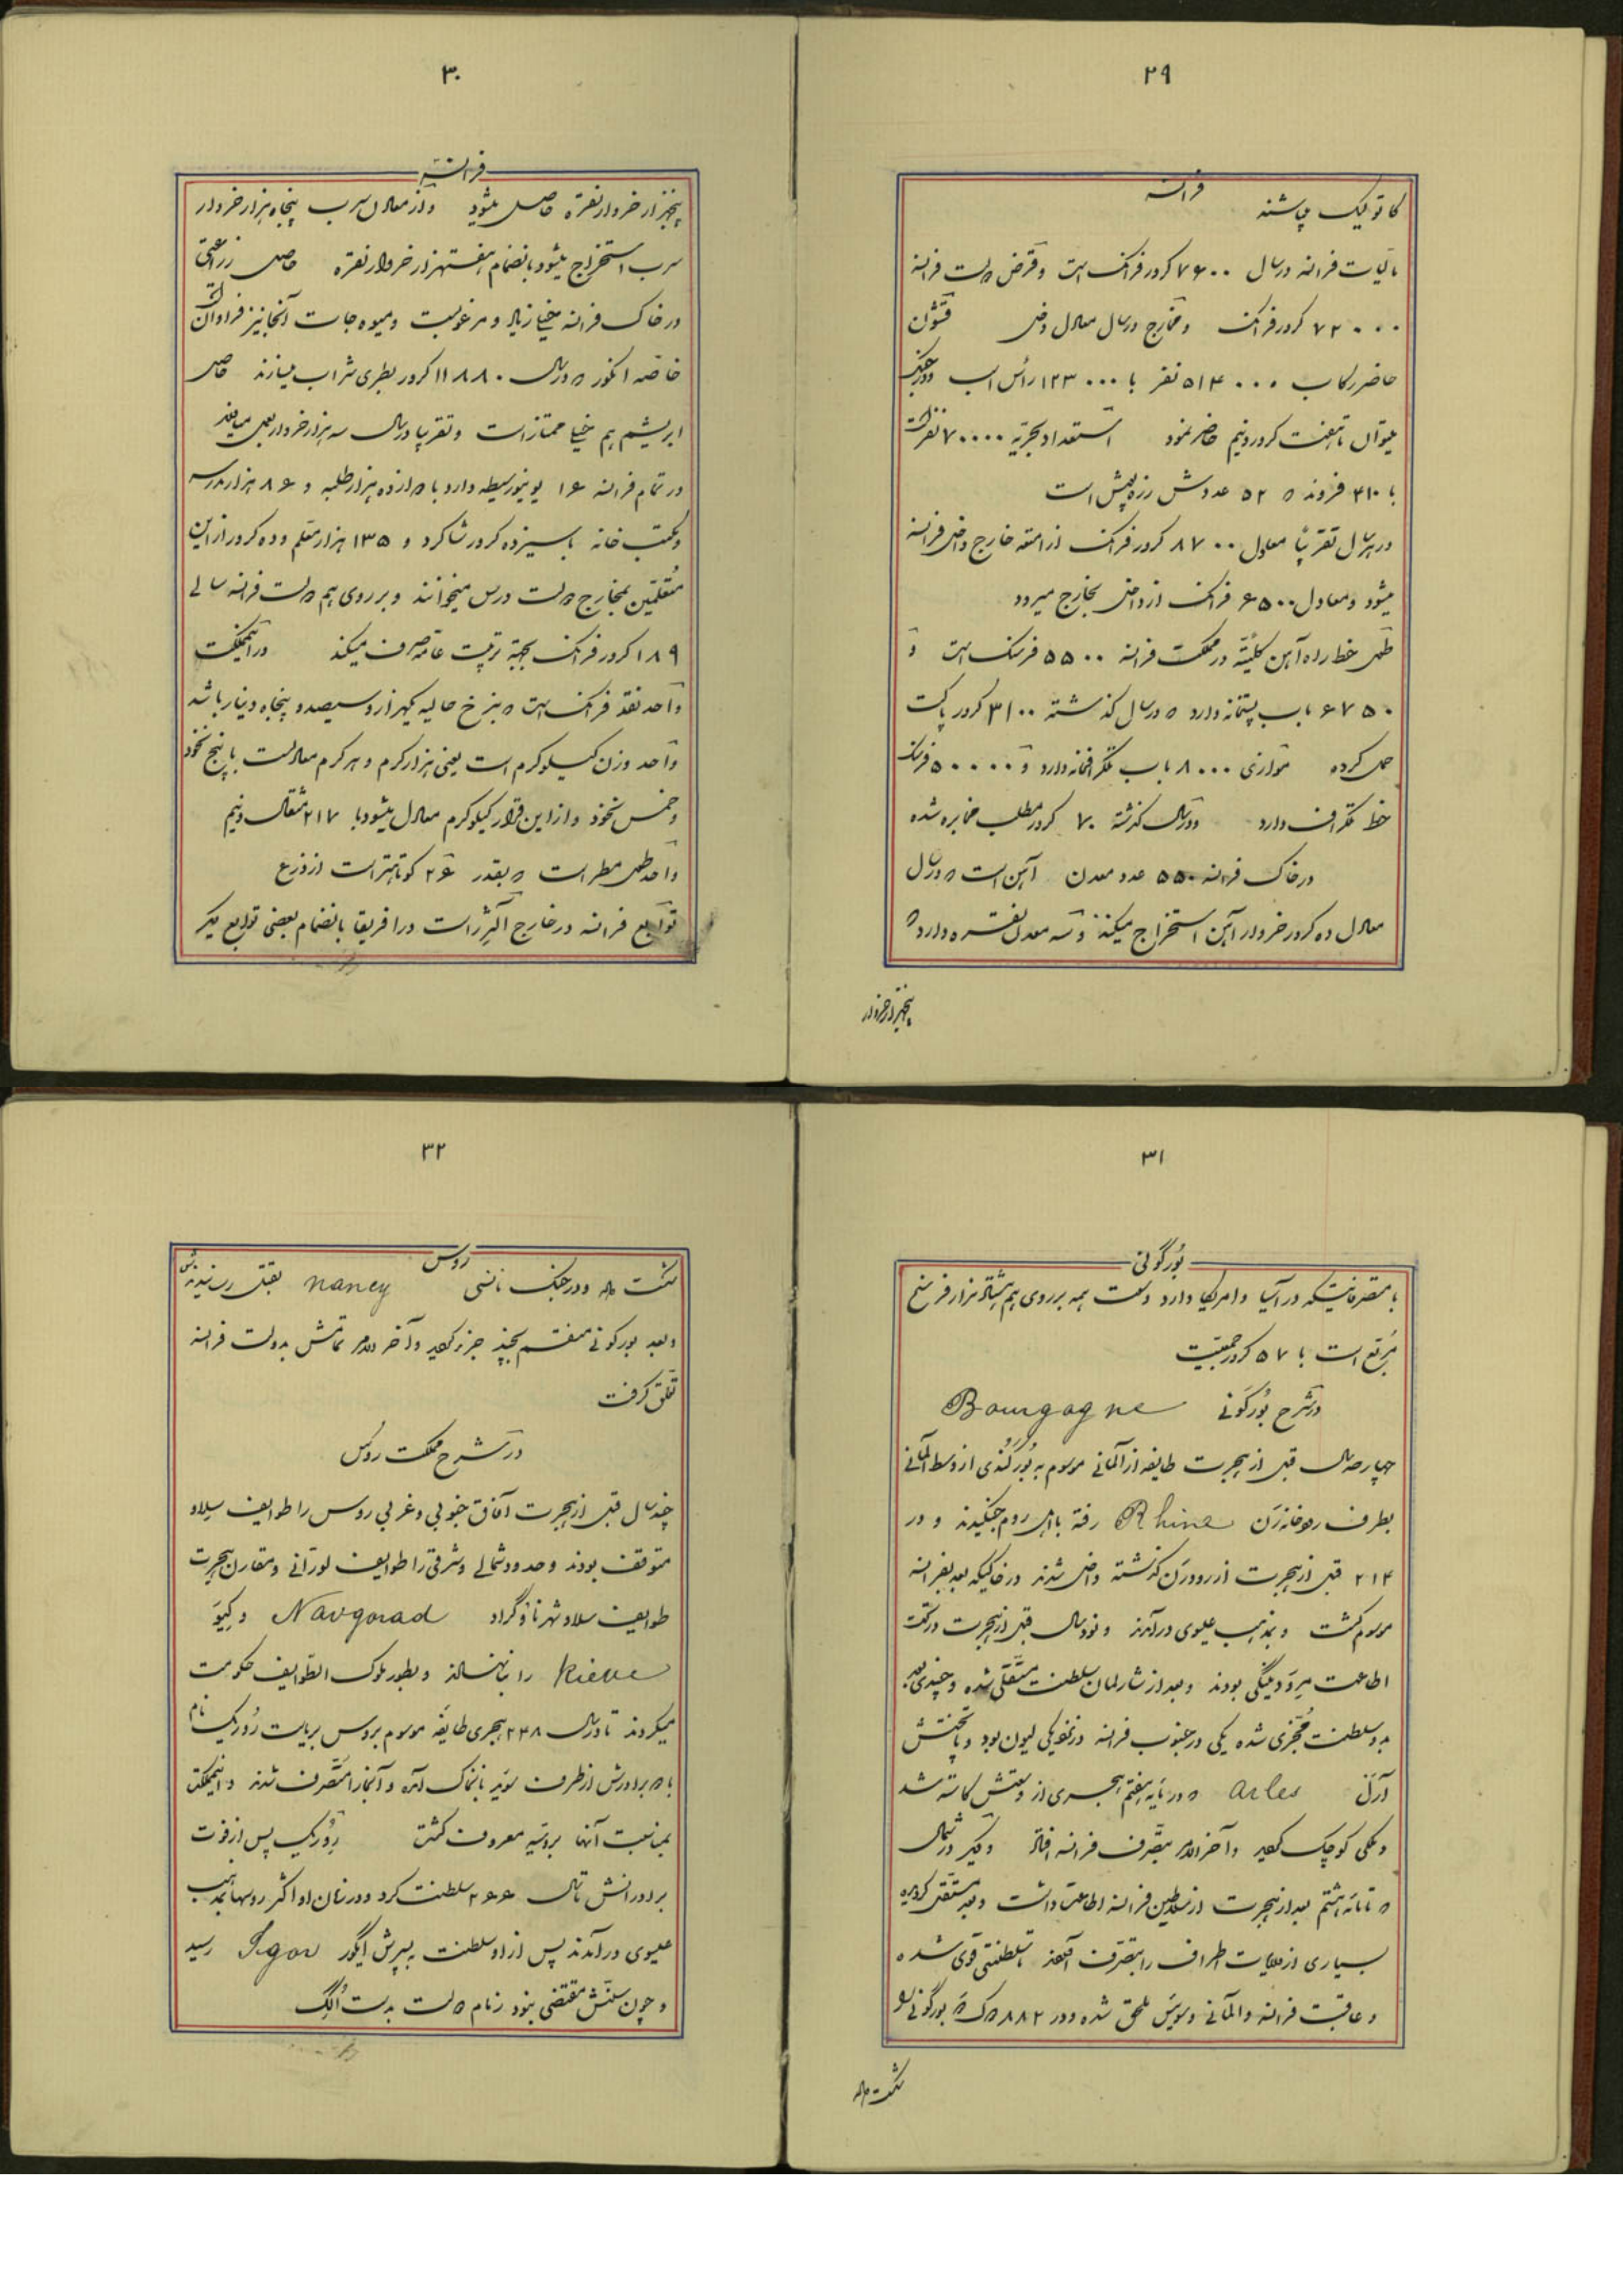 ۲۹
فرانسه
کاتولیک میباشند
مالیات فرانسه در سال ۷۶۰۰ کرور فرانک است و قرض دولت فرانسه
۷۲۰۰۰ کرور فرانک و مخارج در سال معادل دخل قشون
حاضر رکاب ۵۱۴۰۰۰ نفر با ۱۲۳۰۰۰ رأس اسب و در جنگ
میتوان تا هفت کرور و نیم حاضر نمود استعداد بحریه ۷۰۰۰۰ نفر است
با ۴۱۰ فروند که ۵۲ عددش زره پوش است
در هر سال تقریباً معادل ۸۷۰۰ کرور فرانک از امتعه خارج داخل فرانسه
میشود و معادل ۶۵۰۰ فرانک از داخل بخارج میرود
طول خط راه آهن کلیتة در مملکت فرانسه ۵۵۰۰ فرسنگ است و
۶۷۵۰ باب پستخانه دارد که در سال گذشته ۳۱۰۰ کرور پاکت
حمل کرده موازی ۸۰۰۰ باب تلگرافخانه دارد و ۵۰۰۰۰ فرسنگ
خط تلگراف دارد و در سال گذشته ۷۰ کرور مطلب مخابره شده
در خاک فرانسه ۵۵۰ عدد معدن آهن است که در سال
معادل ده کرور خروار آهن استخراج میکنند و سه معدن نقره دارد که
پنجهزار خروار
۳۰
فرانسه
پنجهزار خروار نقره حاصل میشود و از معادن سرب پنجاه هزار خروار
سرب استخراج میشود بانضمام هفتهزار خروار نقره حاصل زراعتی
در خاک فرانسه خیلی زیاد و مرغوبست و میوه جات آنجا نیز فراوان است
خاصه انگور که در سال ۱۱۸۸۰ کرور بطری شراب میسازند حاصل
ابریشم هم خیلی ممتاز است و تقریبا در سال سه هزار خروار بعمل میاید
در تمام فرانسه ۱۶ یونیورسیطه دارد با دوازده هزار طلبه و ۸۶ هزار مدرسه
و مکتب خانه با سیزده کرور شاگرد و ۱۳۵ هزار معلم و ده کرور از این
متعلمین بمخارج دولت درس میخوانند و بر روی هم دولت فرانسه سالی
۱۸۹ کرور فرانک بجهة تربیت عامه صرف میکند در این مملکت
واحد نقد فرانک است که بنرخ حالیه یکهزار و سیصد و پنجاه دینار باشد
واحد وزن کیلوگرم است یعنی هزار گرم و هر گرم معادلست با پنج نخود
و خمس نخود و از این قرار کیلوگرم معادل میشود با ۲۱۷ مثقال و نیم
واحد طول مطر است که بقدر ۲۶ کوتاهتر است از ذرع
توابع فرانسه در خارج الجزیر است در افریقا بانضمام بعضی توابع دیگر
۳۱
بورگونی
با متصرفاتیکه در آسیا و امریکا دارد وسعت همه بر روی هم هشتاد هزار فرسخ
مربع است با ۵۷ کرور جمعیت
در شرح بورگونی Bourgogne
چهار صد سال قبل از هجرت طایفه از آلمانی موسوم به بورگندی از وسط آلمانی
بطرف رودخانه رَن Rhine رفته با اهل روم جنگیدند و در
۲۱۴ قبل از هجرت از رود رن گذشته داخل شدند در خاکیکه بعد بفرانسه
موسوم گشت و بمذهب عیسوی درآمدند و نود سال قبل از هجرت در تحت
اطاعت مِرَودینگی بودند و بعد از شارلمان سلطنت مستقلی شده و چندی بعد
بدو سلطنت مجزی شده یکی در جنوب فرانسه در نزدیکی لیون بود و پاتختش
آرل Arles که در مایه هفتم هجری از وسعتش کاسته شد
و ملکی کوچک گردید و آخر الامر بتصرف فرانسه افتاد و دیگر در شمال
که تا مائه هشتم بعد از هجرت از سلاطین فرانسه اطاعت داشت و بعد مستقل گردیده
بسیاری از ولایات اطراف را بتصرف آورده تا سلطنتی قوی شده
و عاقبت فرانسه و آلمانی و سویس ملحق شده و در ۸۸۲ دوک بورگونی را
شکست داده
۳۲
روس
شکست داده و در جنگ نانسی nancy بقتل رسانیدندش
و بعد بورگونی منقسم بچند جزء گردید و آخر الامر تمامش بدولت فرانسه
تعلق گرفت
در شرح مملکت روس
چند سال قبل از هجرت آفاق جنوبی و غربی روس را طوایف سلاو
متوقف بودند و حدود شمالی و شرقی را طوایف تورانی و مقارن هجرت
طوایف سلاو شهر ناوگراد Navgorad و کیِوَ
Kieve را بنا نهادند و بطور ملوک الطوایف حکومت
میکردند تا در سال ۲۴۸ هجری طایفه موسوم بروس بریاست رُوریک نام
با دو برادرش از طرف سوید باینخاک آمده و آنجا را متصرف شدند و اینمملکت
بمناسبت آنها بروسیه معروف گشت رُوریک پس از فوت
برادرانش تا سال ۲۶۶ سلطنت کرد و در زمان او اکثر روسها بمذهب
عیسوی درآمدند پس از او سلطنت به پسرش ایگور Igor رسید
و چون سنّش مقتضی نبود زمام دولت بدست اُلِگ